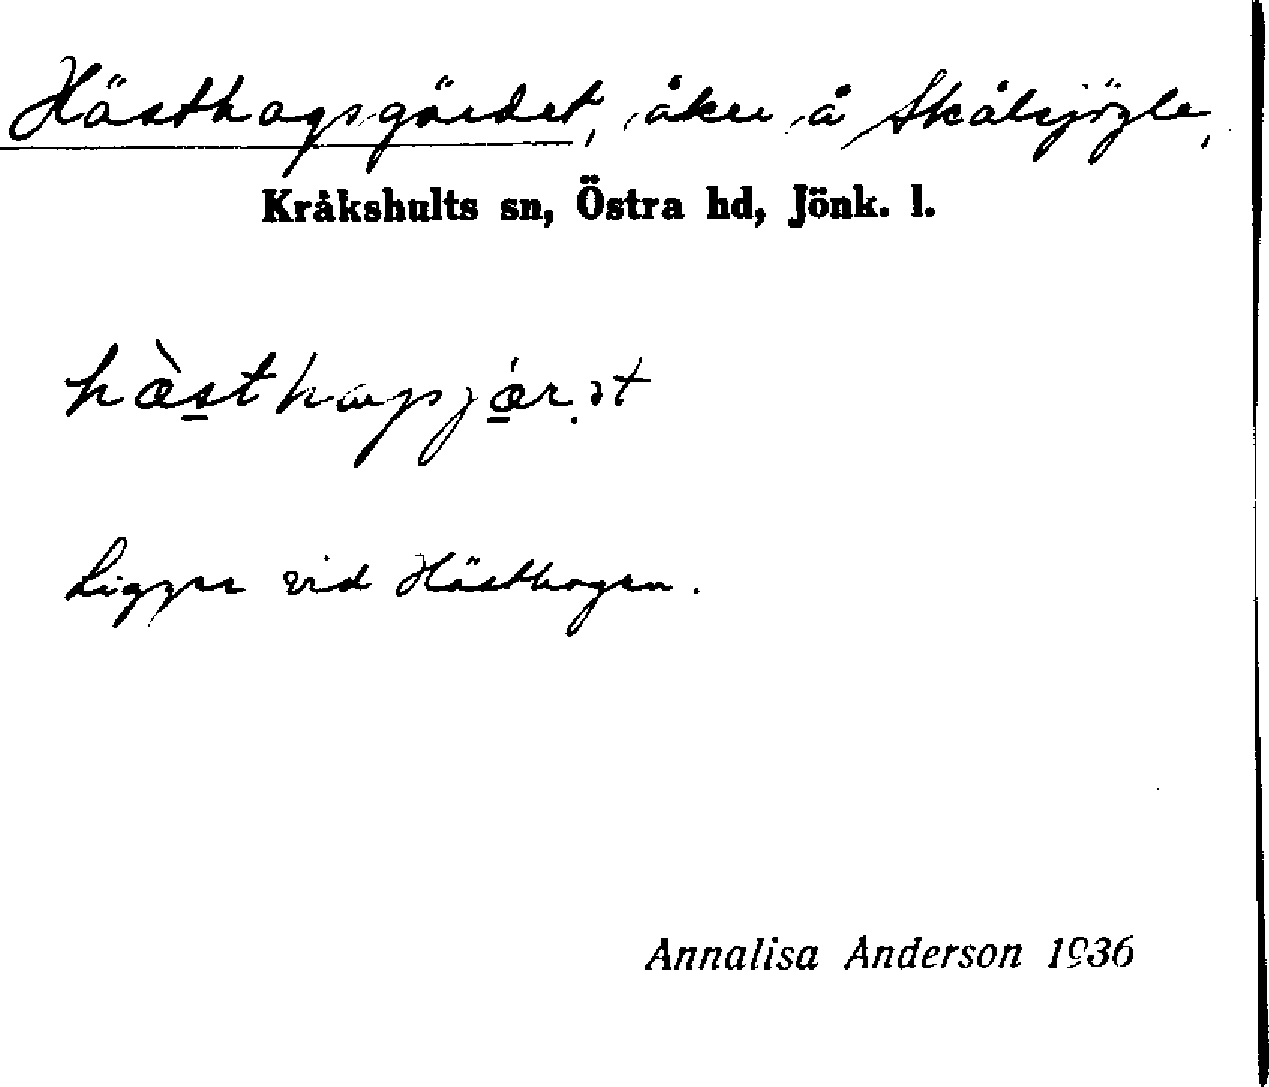 Hästhagsgärdet, åker å Skälsjögle,
Kråkshults sn, Östra hd, Jönk. l.
Ligger vid Hästhagen.
Annalisa Anderson 1936